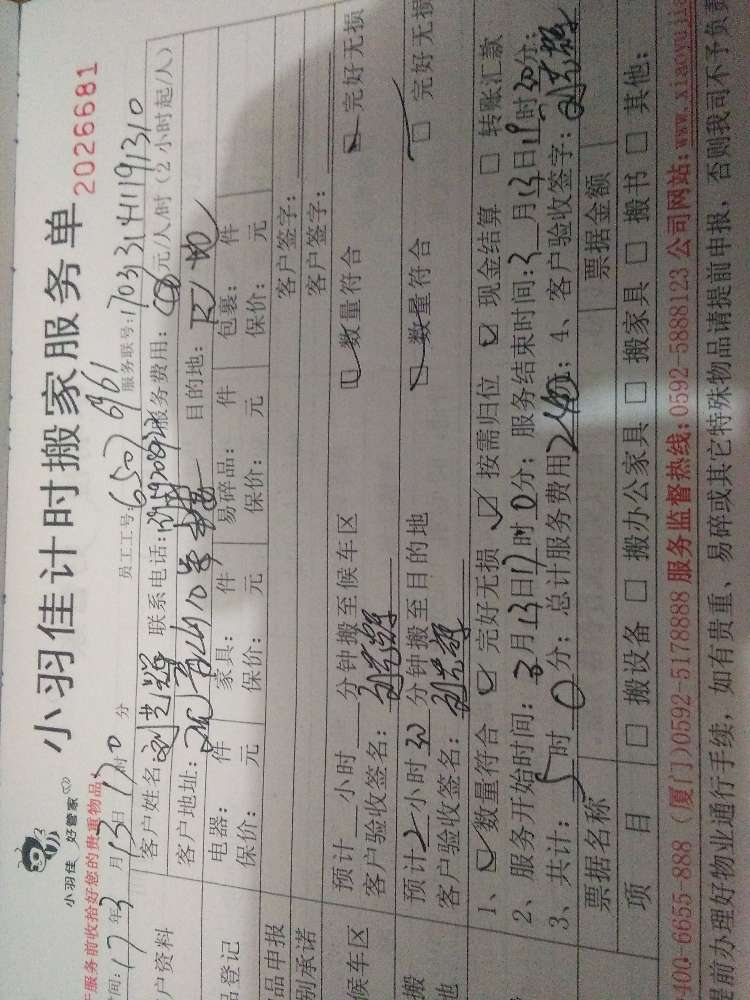 小羽佳计时搬家服务单
小羽佳 好管家
2026681
服务前收拾好您的贵重物品
员工工号: 6507 6961 服务联号: 170313141191310
间: 17年3月13日17时0分
户资料
客户姓名: 联系电话: 服务费用: 元/人/时(2小时起/人)
客户地址: 目的地:
品登记
电器: 件 家具: 件 易碎品: 件 包裹: 件
保价: 元 保价: 元 保价: 元 保价: 元
品申报 客户签字:
别承诺 客户签字:
候车区
预计 小时 分钟搬至候车区 数量符合 完好无损
客户验收签名:
搬
地
预计2小时30分钟搬至目的地 数量符合 完好无损
客户验收签名:
1、 数量符合 完好无损 按需归位 现金结算 转账汇款
2、服务开始时间: 3月13日17时0分; 服务结束时间: 3月13日19时30分;
3、共计: 5时0分; 总计服务费用240元; 4、客户验收签字:
票据名称 票据金额
项目 搬设备 搬办公家具 搬家具 搬书 其他:
400-6655-888 (厦门)0592-5178888 服务监督热线: 0592-5888123 公司网站: www.xiaoyujia
提前办理好物业通行手续, 如有贵重、易碎或其它特殊物品请提前申报, 否则我司不予负责